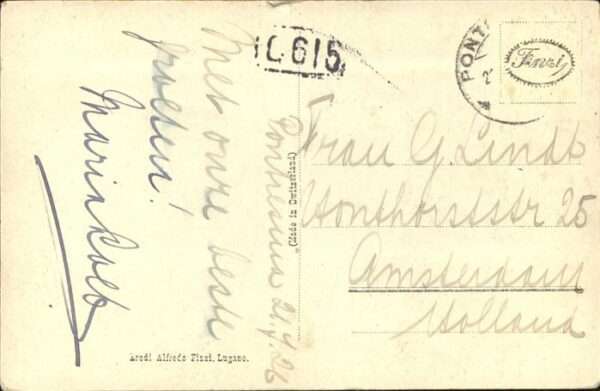 C615
PONT
Finzi
Met onze beste
groeten!
Maria Kolb
Pontresina 21.7.26
(Made in Switzerland)
Frau G. Lindt
Honthorststr 25
Amsterdam
Holland
Ared! Alfredo Finzi, Lugano.